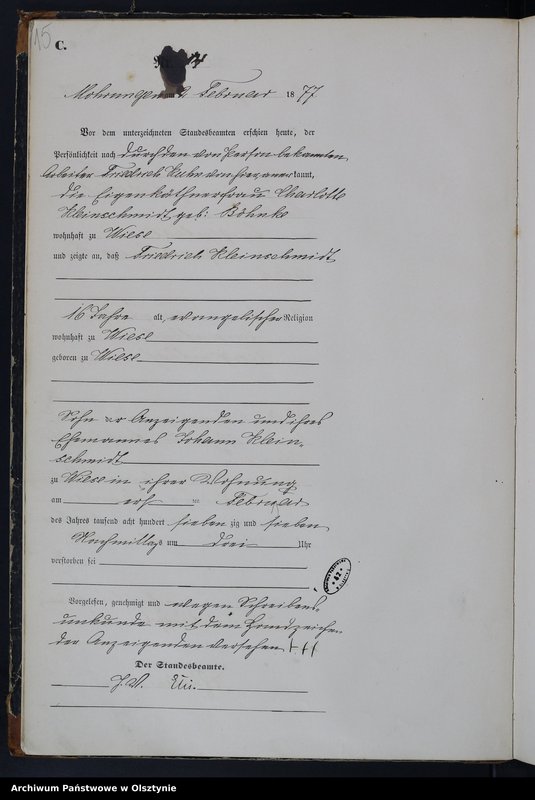 15
C.
Mohrungen am 2. Februar 1877
Vor dem unterzeichneten Standesbeamten erschien heute, der
Persönlichkeit nach durch den von Person bekannten
Arbeiter Friedrich Kuhr von hier, anerkannt,
die Eigenkäthnerfrau Charlotte
Kleinschmidt geb: Böhnke
wohnhaft zu Wiese
und zeigte an, daß Friedrich Kleinschmidt
16 Jahre alt, evangelischer Religion
wohnhaft zu Wiese
geboren zu Wiese
Sohn der Anzeigenden und ihres
Ehemannes Johann Klein-
schmidt
zu Wiese in ihrer Wohnung
am ersten Februar
des Jahres tausend acht hundert siebenzig und sieben
Nachmittags um drei Uhr
verstorben sei
Vorgelesen, genehmigt und wegen Schreibens
unkunde mit dem Handzeichen
der Anzeigenden versehen †††
Der Standesbeamte.
J. V.
Archiwum Państwowe w Olsztynie